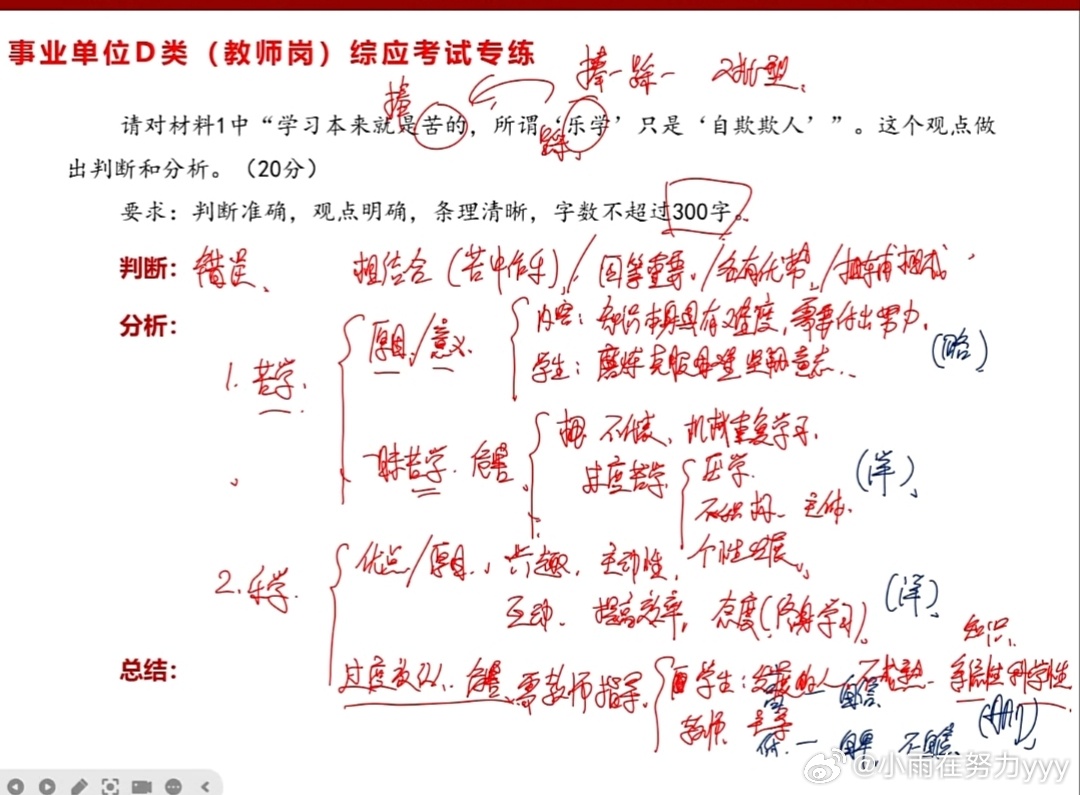 事业单位D类（教师岗）综应考试专练
捧一踩一 对比型.
捧
请对材料1中“学习本来就是苦的，所谓‘乐学’只是‘自欺欺人’”。这个观点做
踩.
出判断和分析。（20分）
要求：判断准确，观点明确，条理清晰，字数不超过300字。
判断：错误、 相结合（苦中作乐）/同等重要./各有优势./相辅相成
分析：
内容：知识本身具有难度，需要付出努力.
1. 苦学. 原因/意义. (略)
学生：磨炼克服 坚韧意志..
不代表、机械重复学习.
一味苦学. 危害. 过度苦学 厌学. (详)
主体.
个性发展.
2. 乐学. 优点/原因.、兴趣.、主动性.
互动、提高效率，态度(终身学习). (详)
知识.
总结：
过度 危害.需教师指导. 学生：发展的人 不成熟 系统性科学性
高一自信
教师 主导
低一自卑 不自信
@小雨在努力yyy